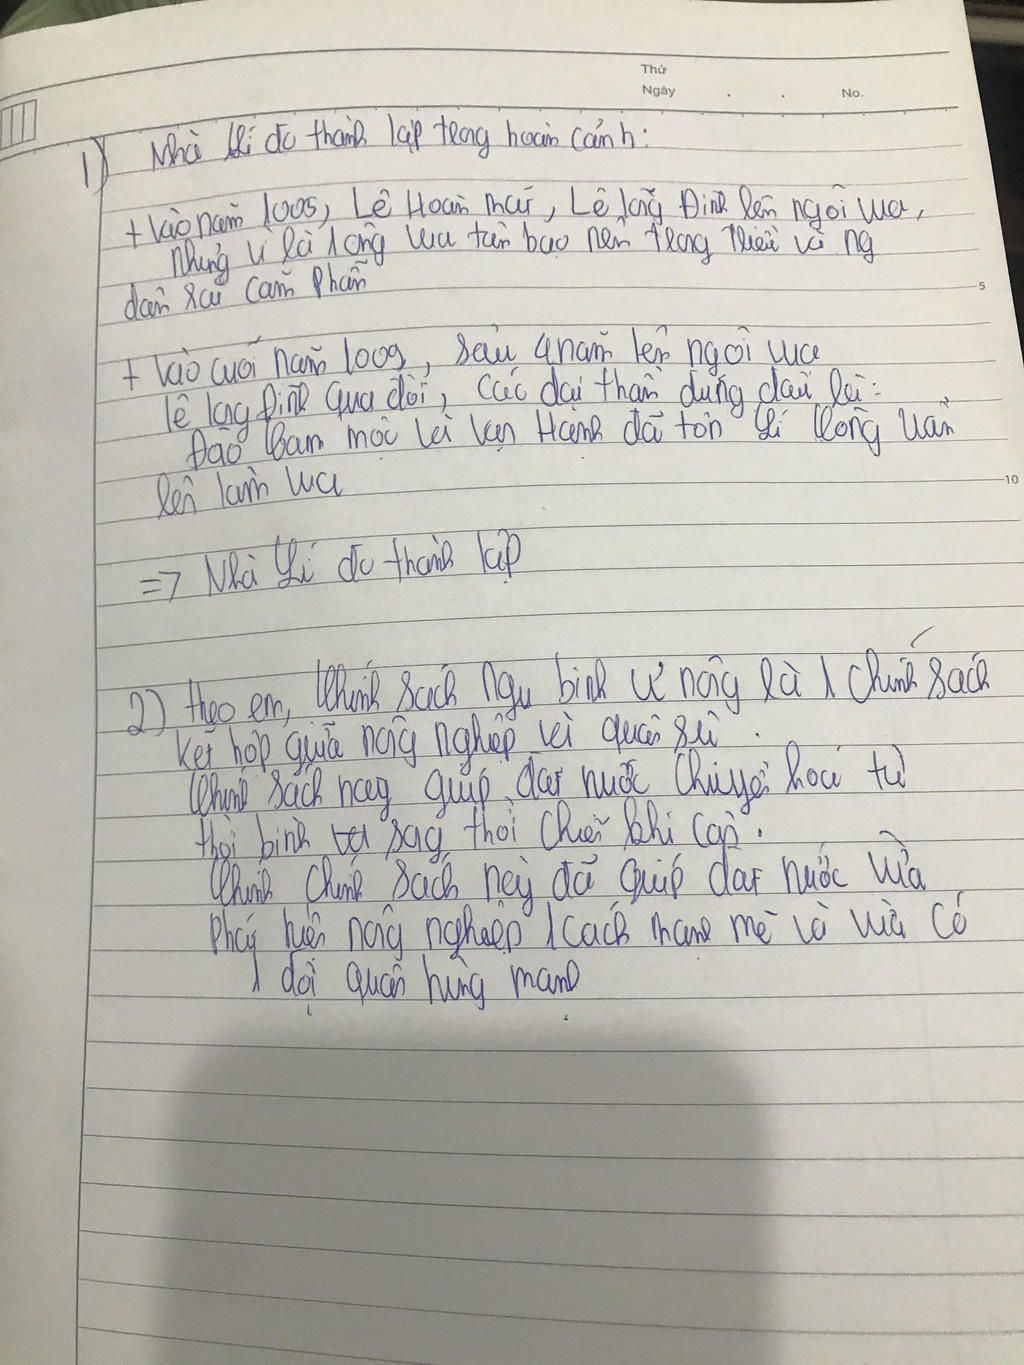 Thứ
Ngày . . No.
1) Nhà Lí đc thành lập trong hoàn cảnh:
+ Vào năm 1005, Lê Hoàn mất, Lê Long Đĩnh lên ngôi vua,
nhưng vì là 1 ông vua tàn bạo nên trong triều và ng
dân rất căm phẫn
5
+ Vào cuối năm 1009, sau 4 năm lên ngôi vua
Lê Long Đĩnh qua đời, các đại thần đứng đầu là:
Đào Cam mộc và Vạn Hạnh đã tôn Lí Công Uẩn
lên làm vua
10
=> Nhà Lí đc thành lập
2) theo em, Chính sách ngụ binh ư nông là 1 chính sách
kết hợp giữa nông nghiệp và quân sự.
Chính sách này giúp đất nước chuyển hoá từ
thời bình sang thời chiến khi cần.
Chính chính sách này đã giúp đất nước vừa
phát triển nông nghiệp 1 cách mạnh mẽ và vừa có
1 đội quân hùng mạnh